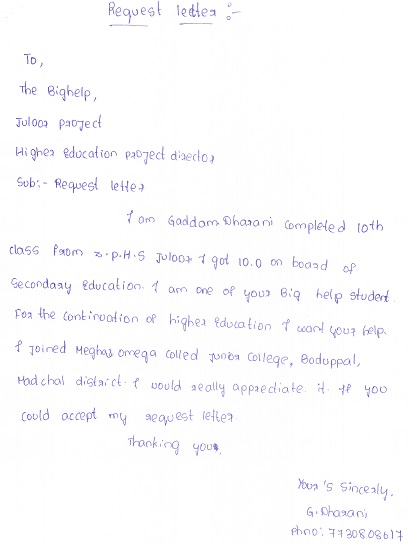 Request letter :-
To,
The Bighelp,
Juloor project
Higher Education project director
Sub:- Request letter
I am Gaddam.Dharani completed 10th
class from z.p.H.S Juloor I got 10.0 on board of
Secondary Education. I am one of your Big help student.
For the continuation of higher Education I want your help.
I joined Meghas omega colled junior College, Boduppal,
Madchal district. I would really appreciate it. If you
could accept my request letter.
Thanking you.
Your's Sincerly,
G. Dharani
Phno: 7730808617